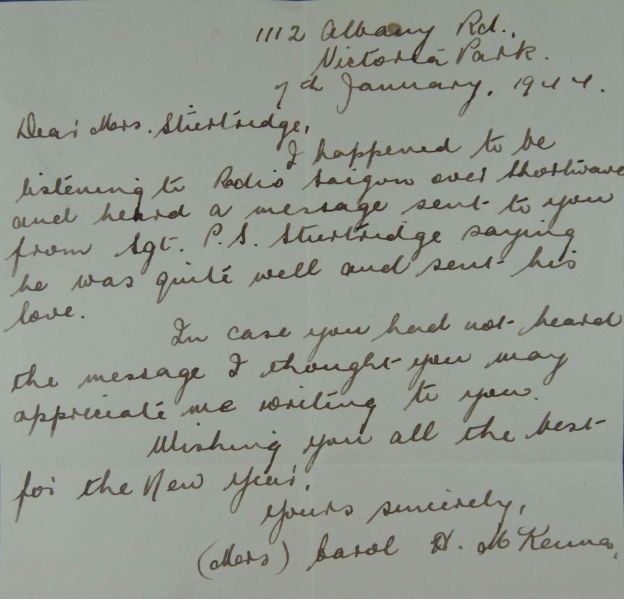 1112 Albany Rd.,
Victoria Park.
7th January, 1944.
Dear Mrs. Sturtridge,
I happened to be
listening to Radio Saigon over Shortwave
and heard a message sent to you
from Sgt. P. S. Sturtridge saying
he was quite well and sent his
love.
In case you had not heard
the message I thought you may
appriciate me writing to you.
Wishing you all the best
for the New Year,
Yours sincerely,
(Mrs) Carol H. McKenna,